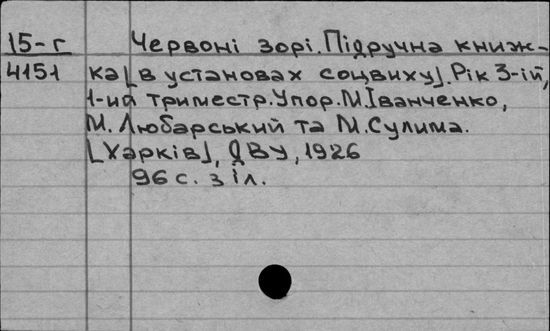 15-г Червоні зорі. Підручна книж-
4151 ка [в установах соцвиху]. Рік 3-ій,
1-ий триместр. Упор. М. Іванченко,
М. Любарський та М. Сулима.
[Харків], ДВУ, 1926
96 с. з іл.